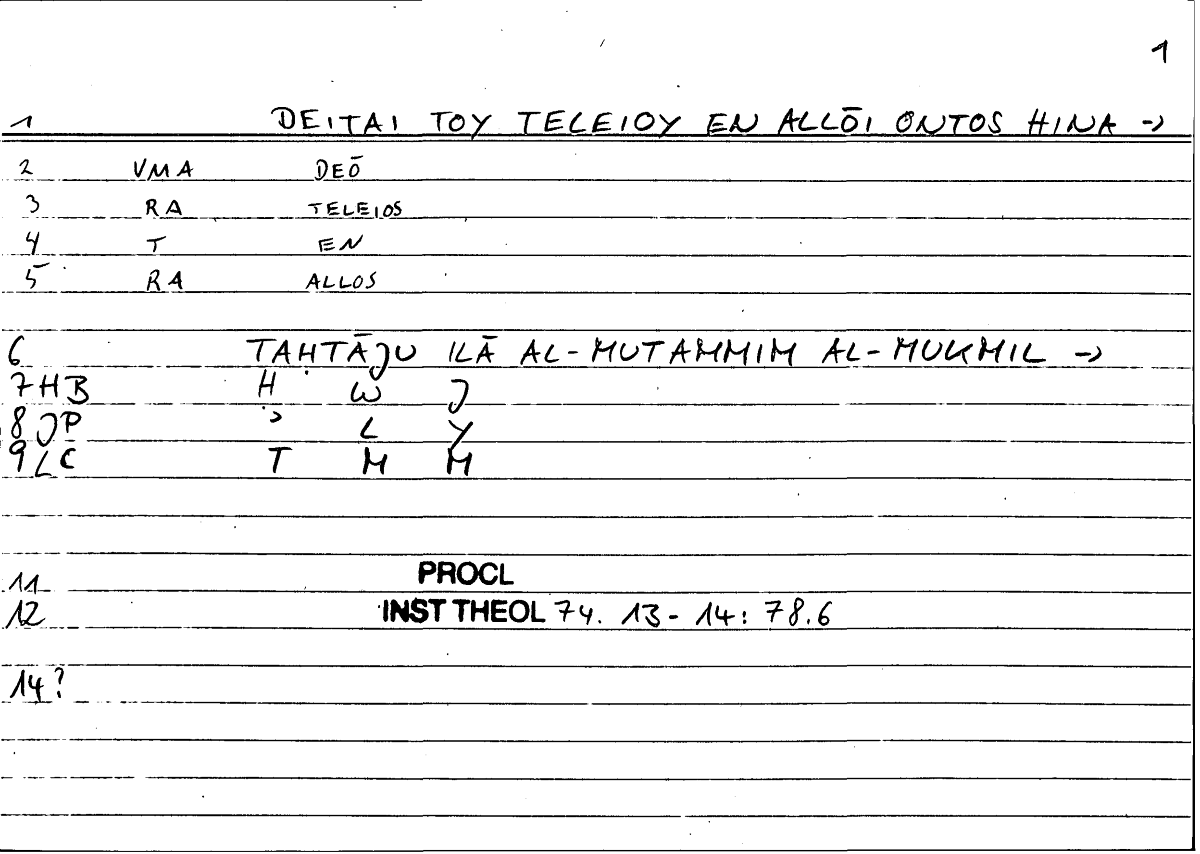 1
1 DEITAI TOY TELEIOY EN ALLŌI ONTOS HINA →
2 VMA DEŌ
3 RA TELEIOS
4 T EN
5 RA ALLOS
6 TAḤTĀJU ILĀ AL-MUTAMMIM AL-MUKMIL →
7HB Ḥ W J
8JP ʾ L Y
9LC T M M
11 PROCL
12 INST THEOL 74. 13-14: 78.6
14?